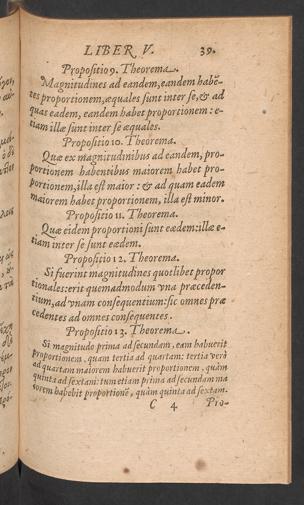 LIBER V. 39.
Propositio 9. Theorema.
Magnitudines ad eandem, eandem habẽ-
tes proportionem, æquales sunt inter se, & ad
quas eadem, eandem habet proportionem: e-
tiam illæ sunt inter se æquales.
Propositio 10. Theorema.
Quæ ex magnitudinibus ad eandem, pro-
portionem habentibus maiorem habet pro-
portionem, illa est maior: & ad quam eadem
maiorem habet proportionem, illa est minor.
Propositio 11. Theorema.
Quæ eidem proportioni sunt eædem: illæ e-
tiam inter se sunt eædem.
Propositio 12. Theorema.
Si fuerint magnitudines quotlibet propor
tionales: erit quemadmodum vna præceden-
tium, ad vnam consequentium: sic omnes præ
cedentes ad omnes consequentes.
Propositio 13. Theorema.
Si magnitudo prima ad secundam, eam habuerit
proportionem, quam tertia ad quartam: tertia verò
ad quartam maiorem habuerit proportionem, quàm
quinta ad sextam: tum etiam prima ad secundam ma
iorem habebit proportionẽ, quàm quinta ad sextam.
C 4 Pro-